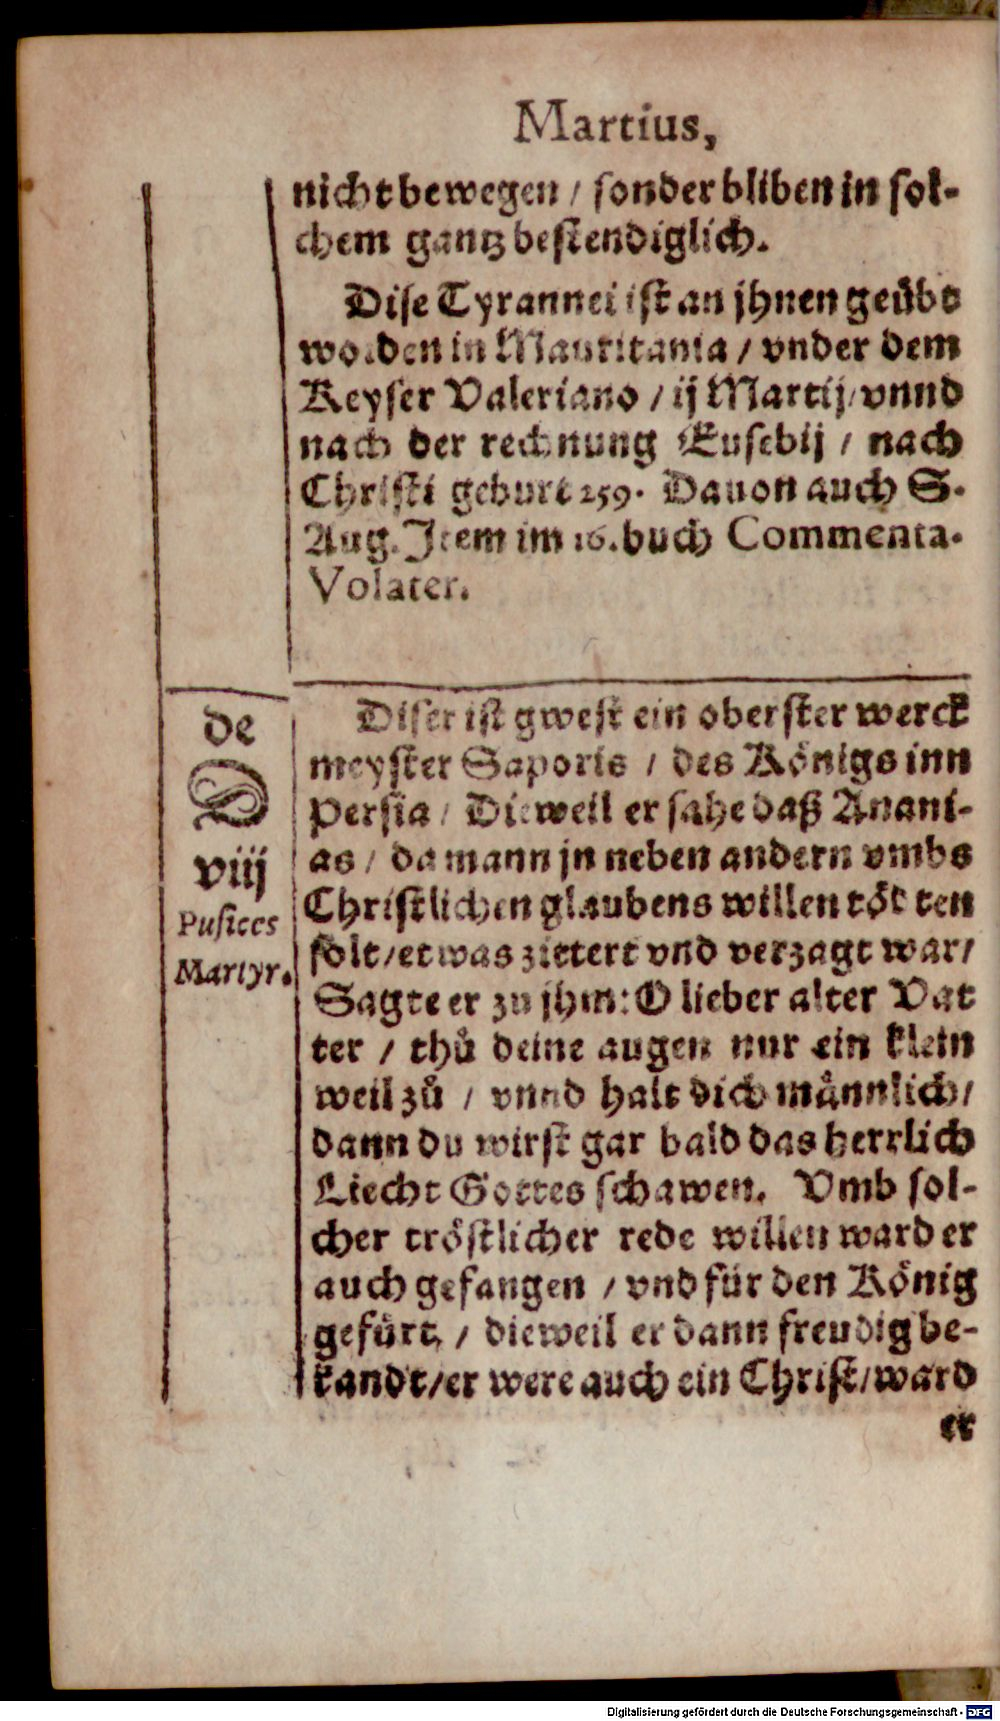 Martius,
nicht bewegen / sonder bliben in sol-
chem gantz bestendiglich.
Dise Tyrannei ist an jhnen geübt
worden in Mauritania / vnder dem
Keyser Valeriano / ij Martij / vnnd
nach der rechnung Eusebij / nach
Christi geburt 259. Dauon auch S.
Aug. Item im 16. buch Commenta.
Volater.
de
D
viij
Pusices
Martyr.
Diser ist gwest ein oberster werck
meyster Saporis / des Königs inn
Persia / Dieweil er sahe daß Anani-
as / da mann jn neben andern vmbs
Christlichen glaubens willen tödten
solt / etwas zittert vnd verzagt war /
Sagte er zu jhm: O lieber alter Vat
ter / thů deine augen nur ein klein
weil zů / vnnd halt dich männlich /
dann du wirst gar bald das herrlich
Liecht Gottes schawen. Vmb sol-
cher tröstlicher rede willen ward er
auch gefangen / vnd für den König
gefürt / dieweil er dann freudig be-
kandt / er were auch ein Christ / ward
er
Digitalisierung gefördert durch die Deutsche Forschungsgemeinschaft - DFG